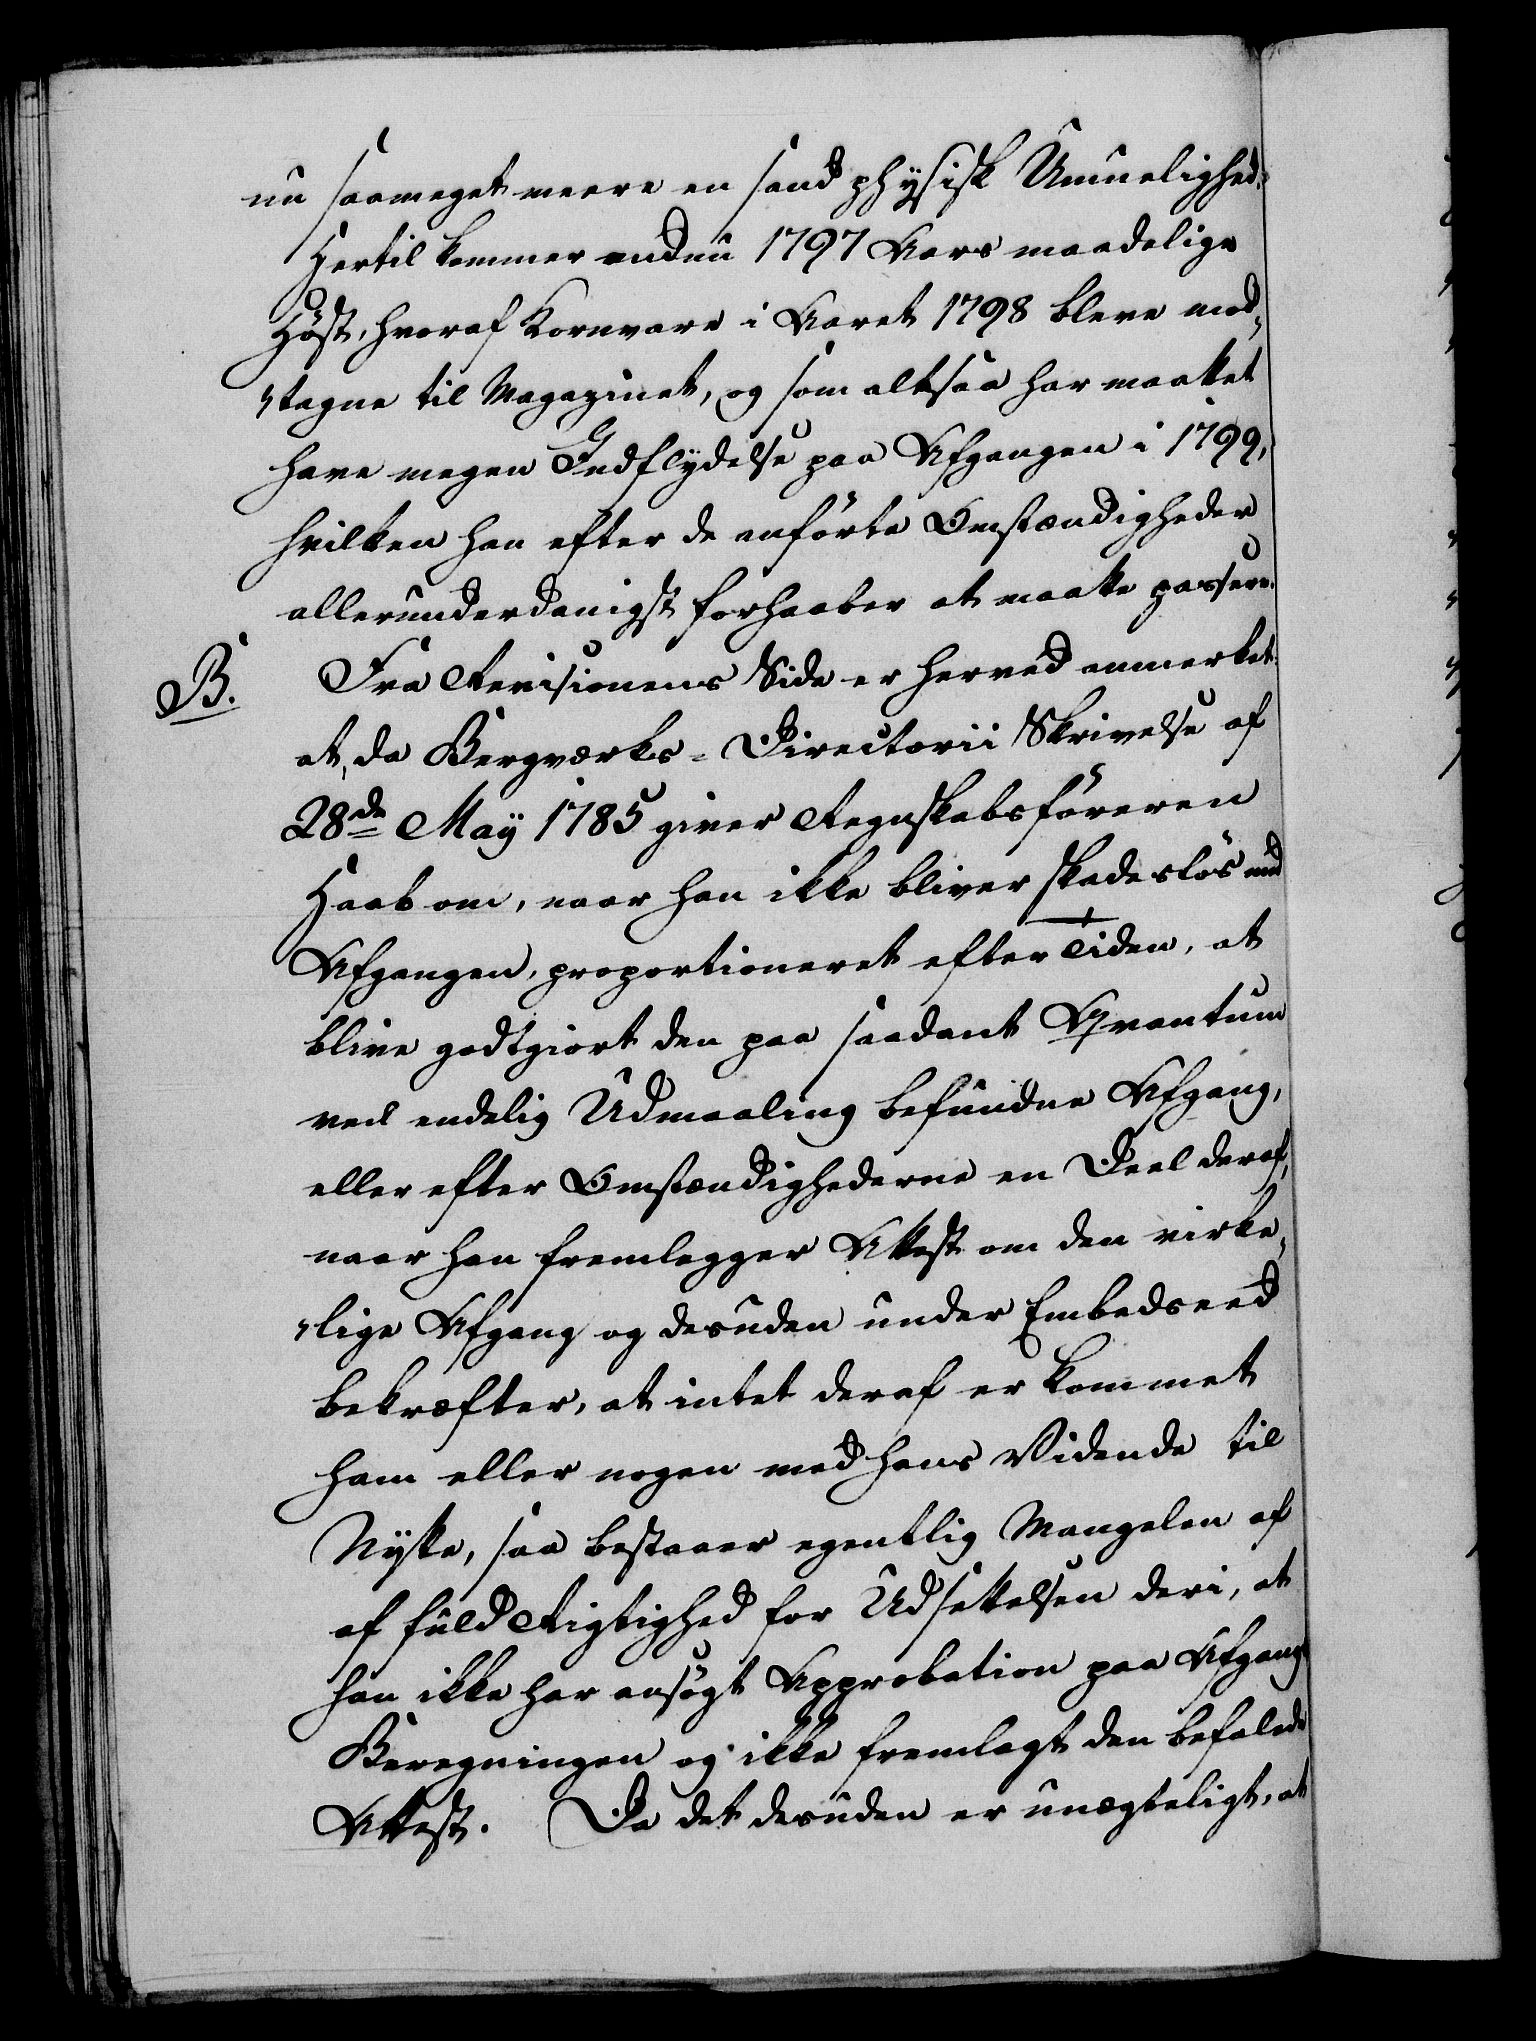 nu saameget meere en sand physisk Umuelighed.
Hertil kommer endnu 1797 Aars maadelige
Høst, hvoraf Kornvare i Aaret 1798 bleve mod¬
tagne til Magazinet, og som altsaa har maattet
have megen Indflydelse paa Afgangen i 1799,
hvilken han efter de anførte Omstændigheder
allerunderdanigst forhaaber at maatte passere.
B. Fra Revisionens Side er herved anmerket
at, da Bergværks-Directorii Skrivelse af
28de May 1785 giver Regnskabsføreren
Haab om, naar han ikke bliver skadesløs med
Afgangen, proportioneret efter Tiden, at
blive godtgiort den paa saadant Qvantum
ved endelig Udmaaling befundne Afgang,
eller efter Omstændighederne en Deel deraf,
naar han fremlegger Attest om den virke¬
lige Afgang og desuden under Embedseed
bekræfter, at intet deraf er kommet
ham eller nogen med hans Vidende til
Nytte, saa bestaaer egentlig Mangelen af
af fuld Rigtighed for Udsettelsen deri, at
han ikke har ansøgt Approbation paa Afgangs
Beregningen og ikke fremlagt den befalede
Attest. Da det desuden er unægteligt, at